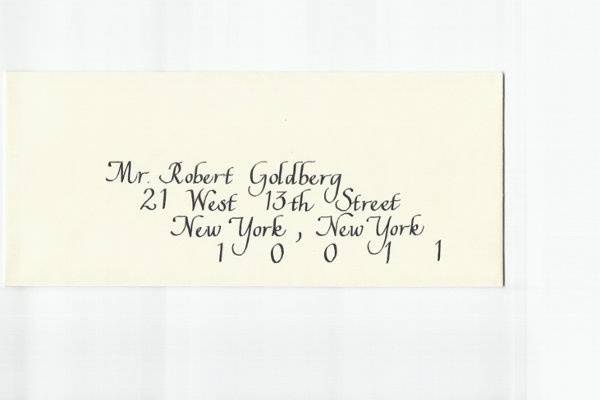 Mr. Robert Goldberg
21 West 13th Street
New York, New York
1 0 0 1 1